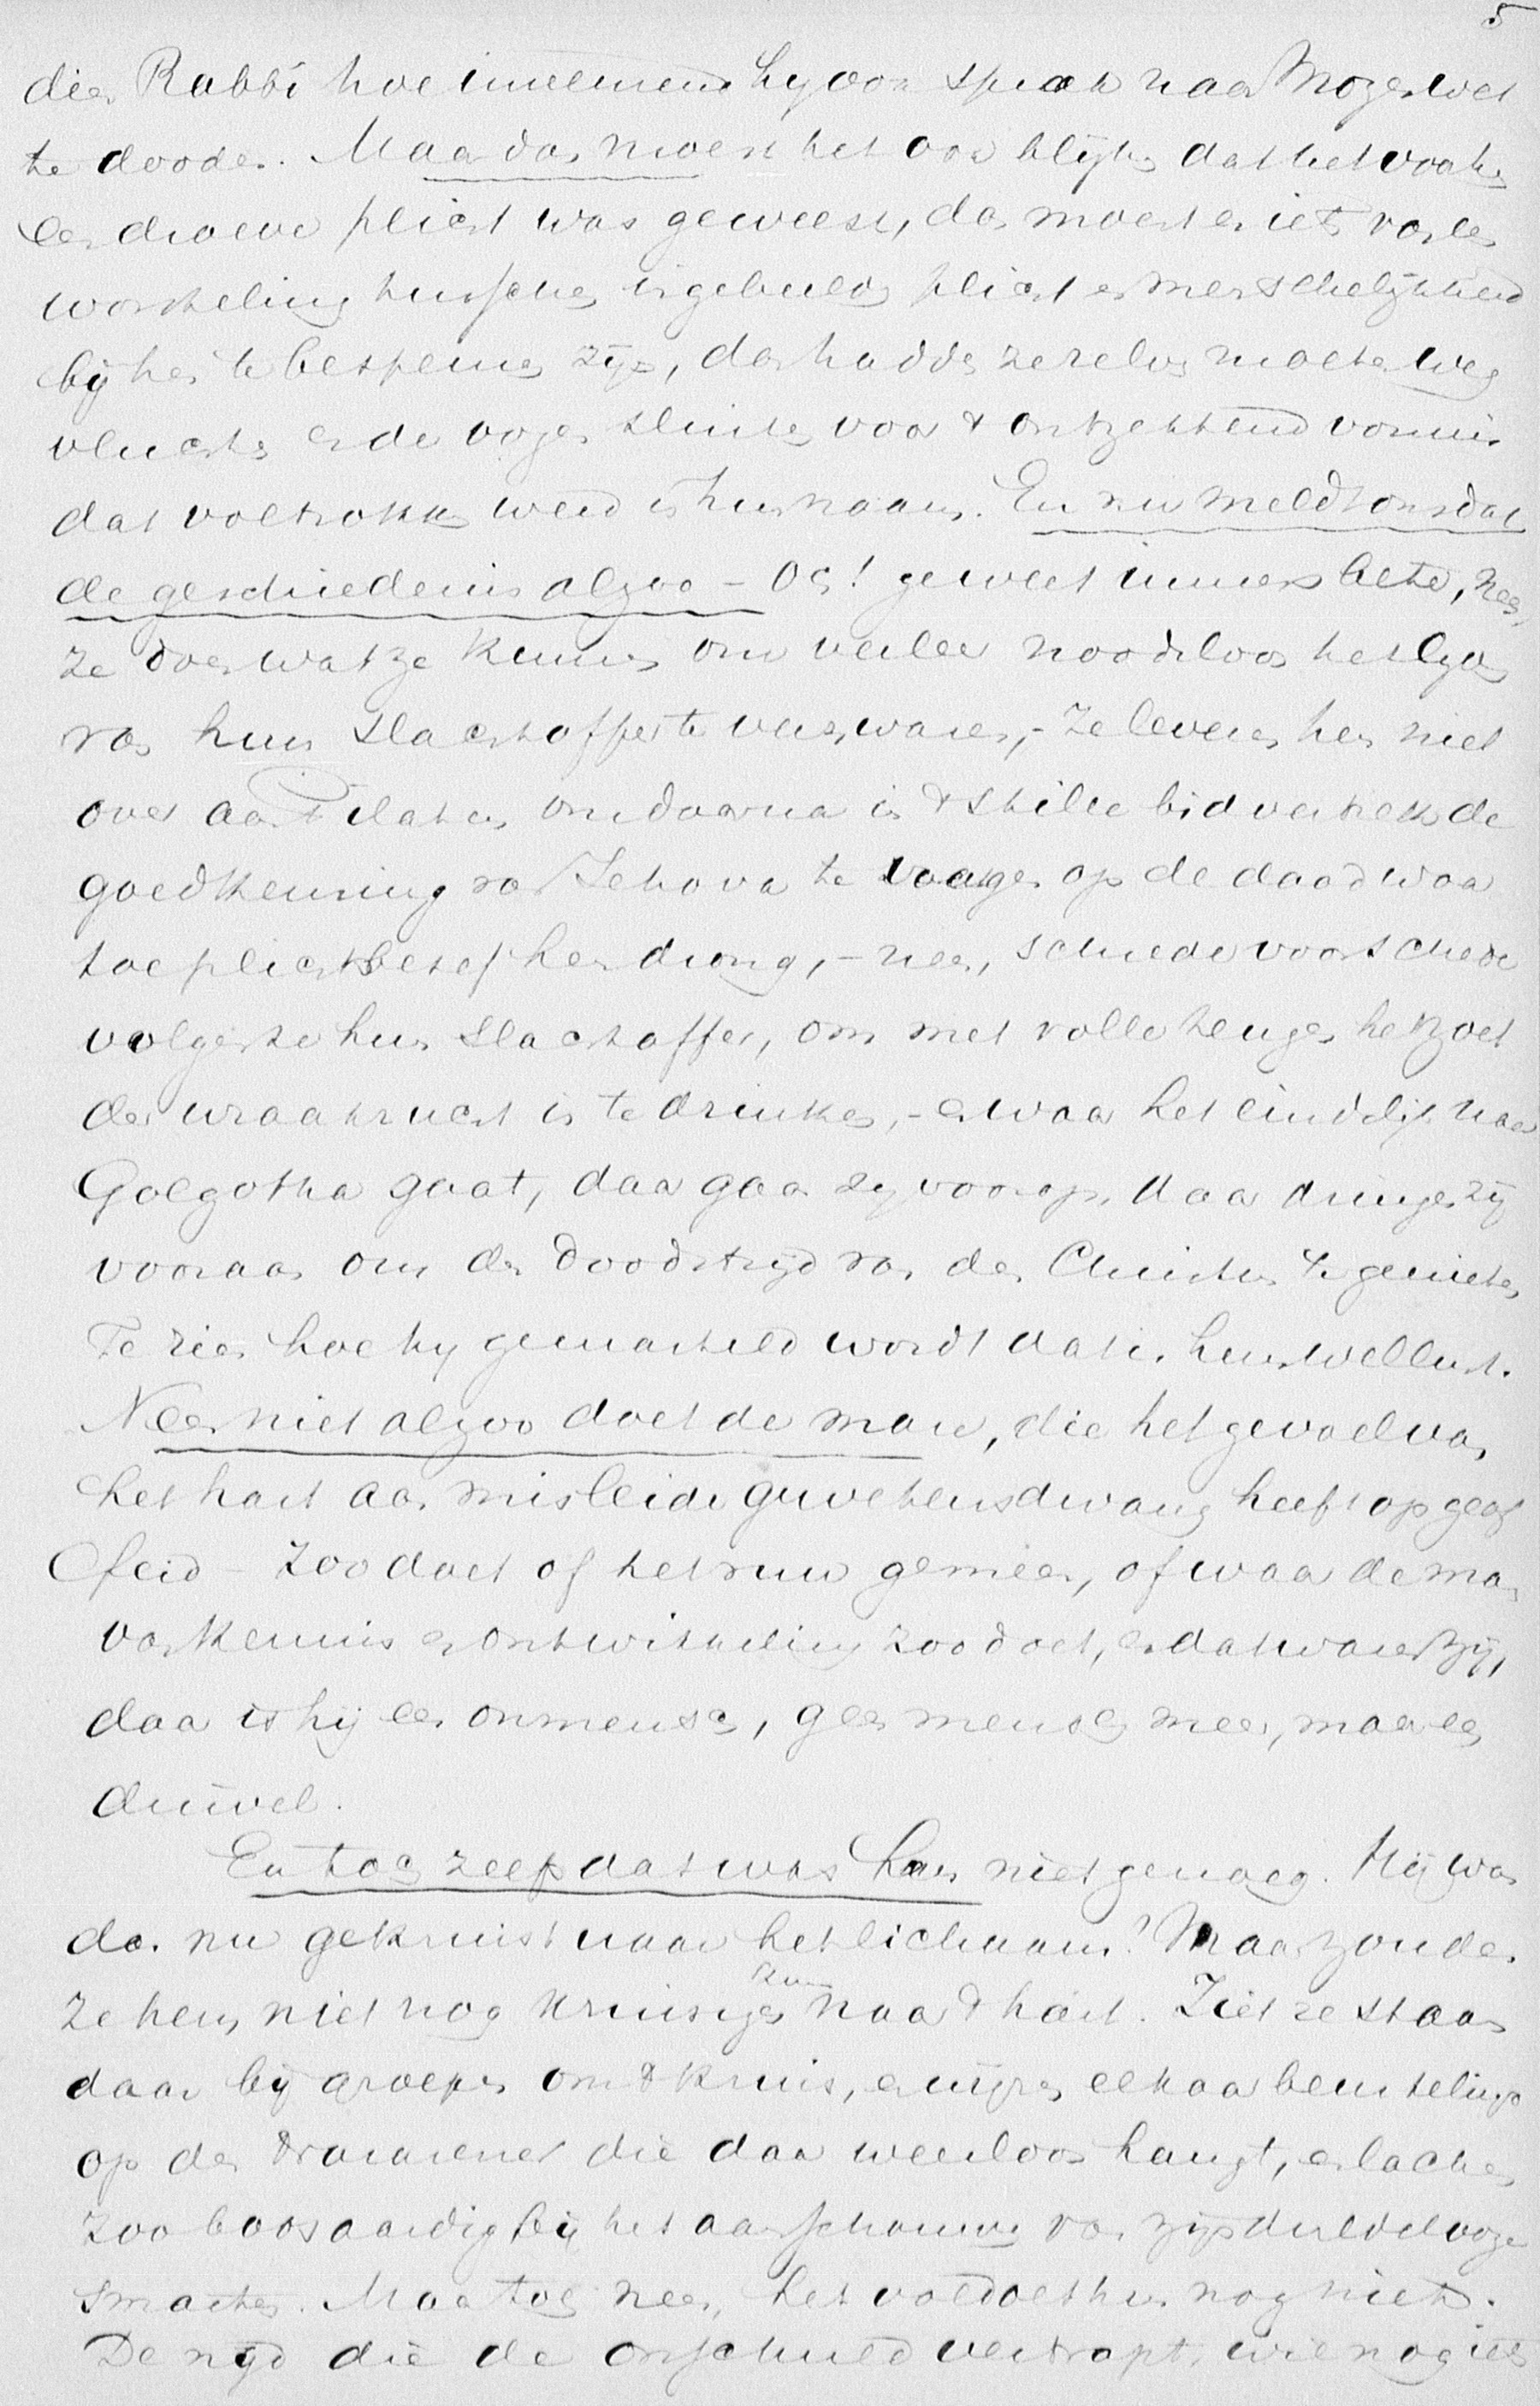 5
dien Rabbi hoe innemend hij ook sprak naar Mozes wet
te dooden. Maar dan moest het ook blijken dat het vooral
een droeve plicht was geweest, dan moest er iets van een
worsteling tusschen ingebeelde plicht en menschelijkheid
bij hen te bespeuren zijn, dan hadden ze zelve moeten weg
vluchten en de oogen sluiten voor 't ontzettend vonnis
dat voltrokken werd in hun naam. En nu meldt ons dat
de geschiedenis alzoo - Och! ge weet immers beter, neen,
ze doen wat ze kunnen om veeleer noodeloos het lijden
van hun slachtoffer te verzwaren, - ze leveren hem niet
over aan Pilatus om daarna in 't stille bidvertrek de
goedkeuring van Jehova te vragen op de daad waar
toe plichtbesef hen drong, - neen, schrede voor schrede
volgen ze hun slachtoffer, om met volle teugen het zoet
der wraakzucht in te drinken, - en waar het eindelijk naar
Golgotha gaat, daar gaan zij voorop, daar dringen zij
vooraan om den doodstrijd van den Christus te genieten,
Te zien hoe hij gemarteld wordt dat is hun wellust.
Neen niet alzoo doet de man, die het gevoel van
het hart aan misleide gewetensdwang heeft opgeof
feid - zoo doet of het ruw gemeen, of waar de man
van kennis en ontwikkeling zoo doet, en dat waren zij,
daar is hij een onmensch, geen mensch meer, maar een
duivel.
En toch zelfs dat was hun niet genoeg. Hij was
dan nu gekruist naar het lichaam! Maar zouden
ze hem niet nog kruisigen kunnen naar 't hart. Ziet ze staan
daar bij groepen om 't kruis, en wijzen elkaar beurtelings
op den Nazarener die daar weerloos hangt, en lachen
zoo boosaardig bij het aanschouwen van zijn duldelooze
smarten. Maar toch neen, het voldoet hun nog niet.
De nijd die de onschuld vertrapt, wil nog iets